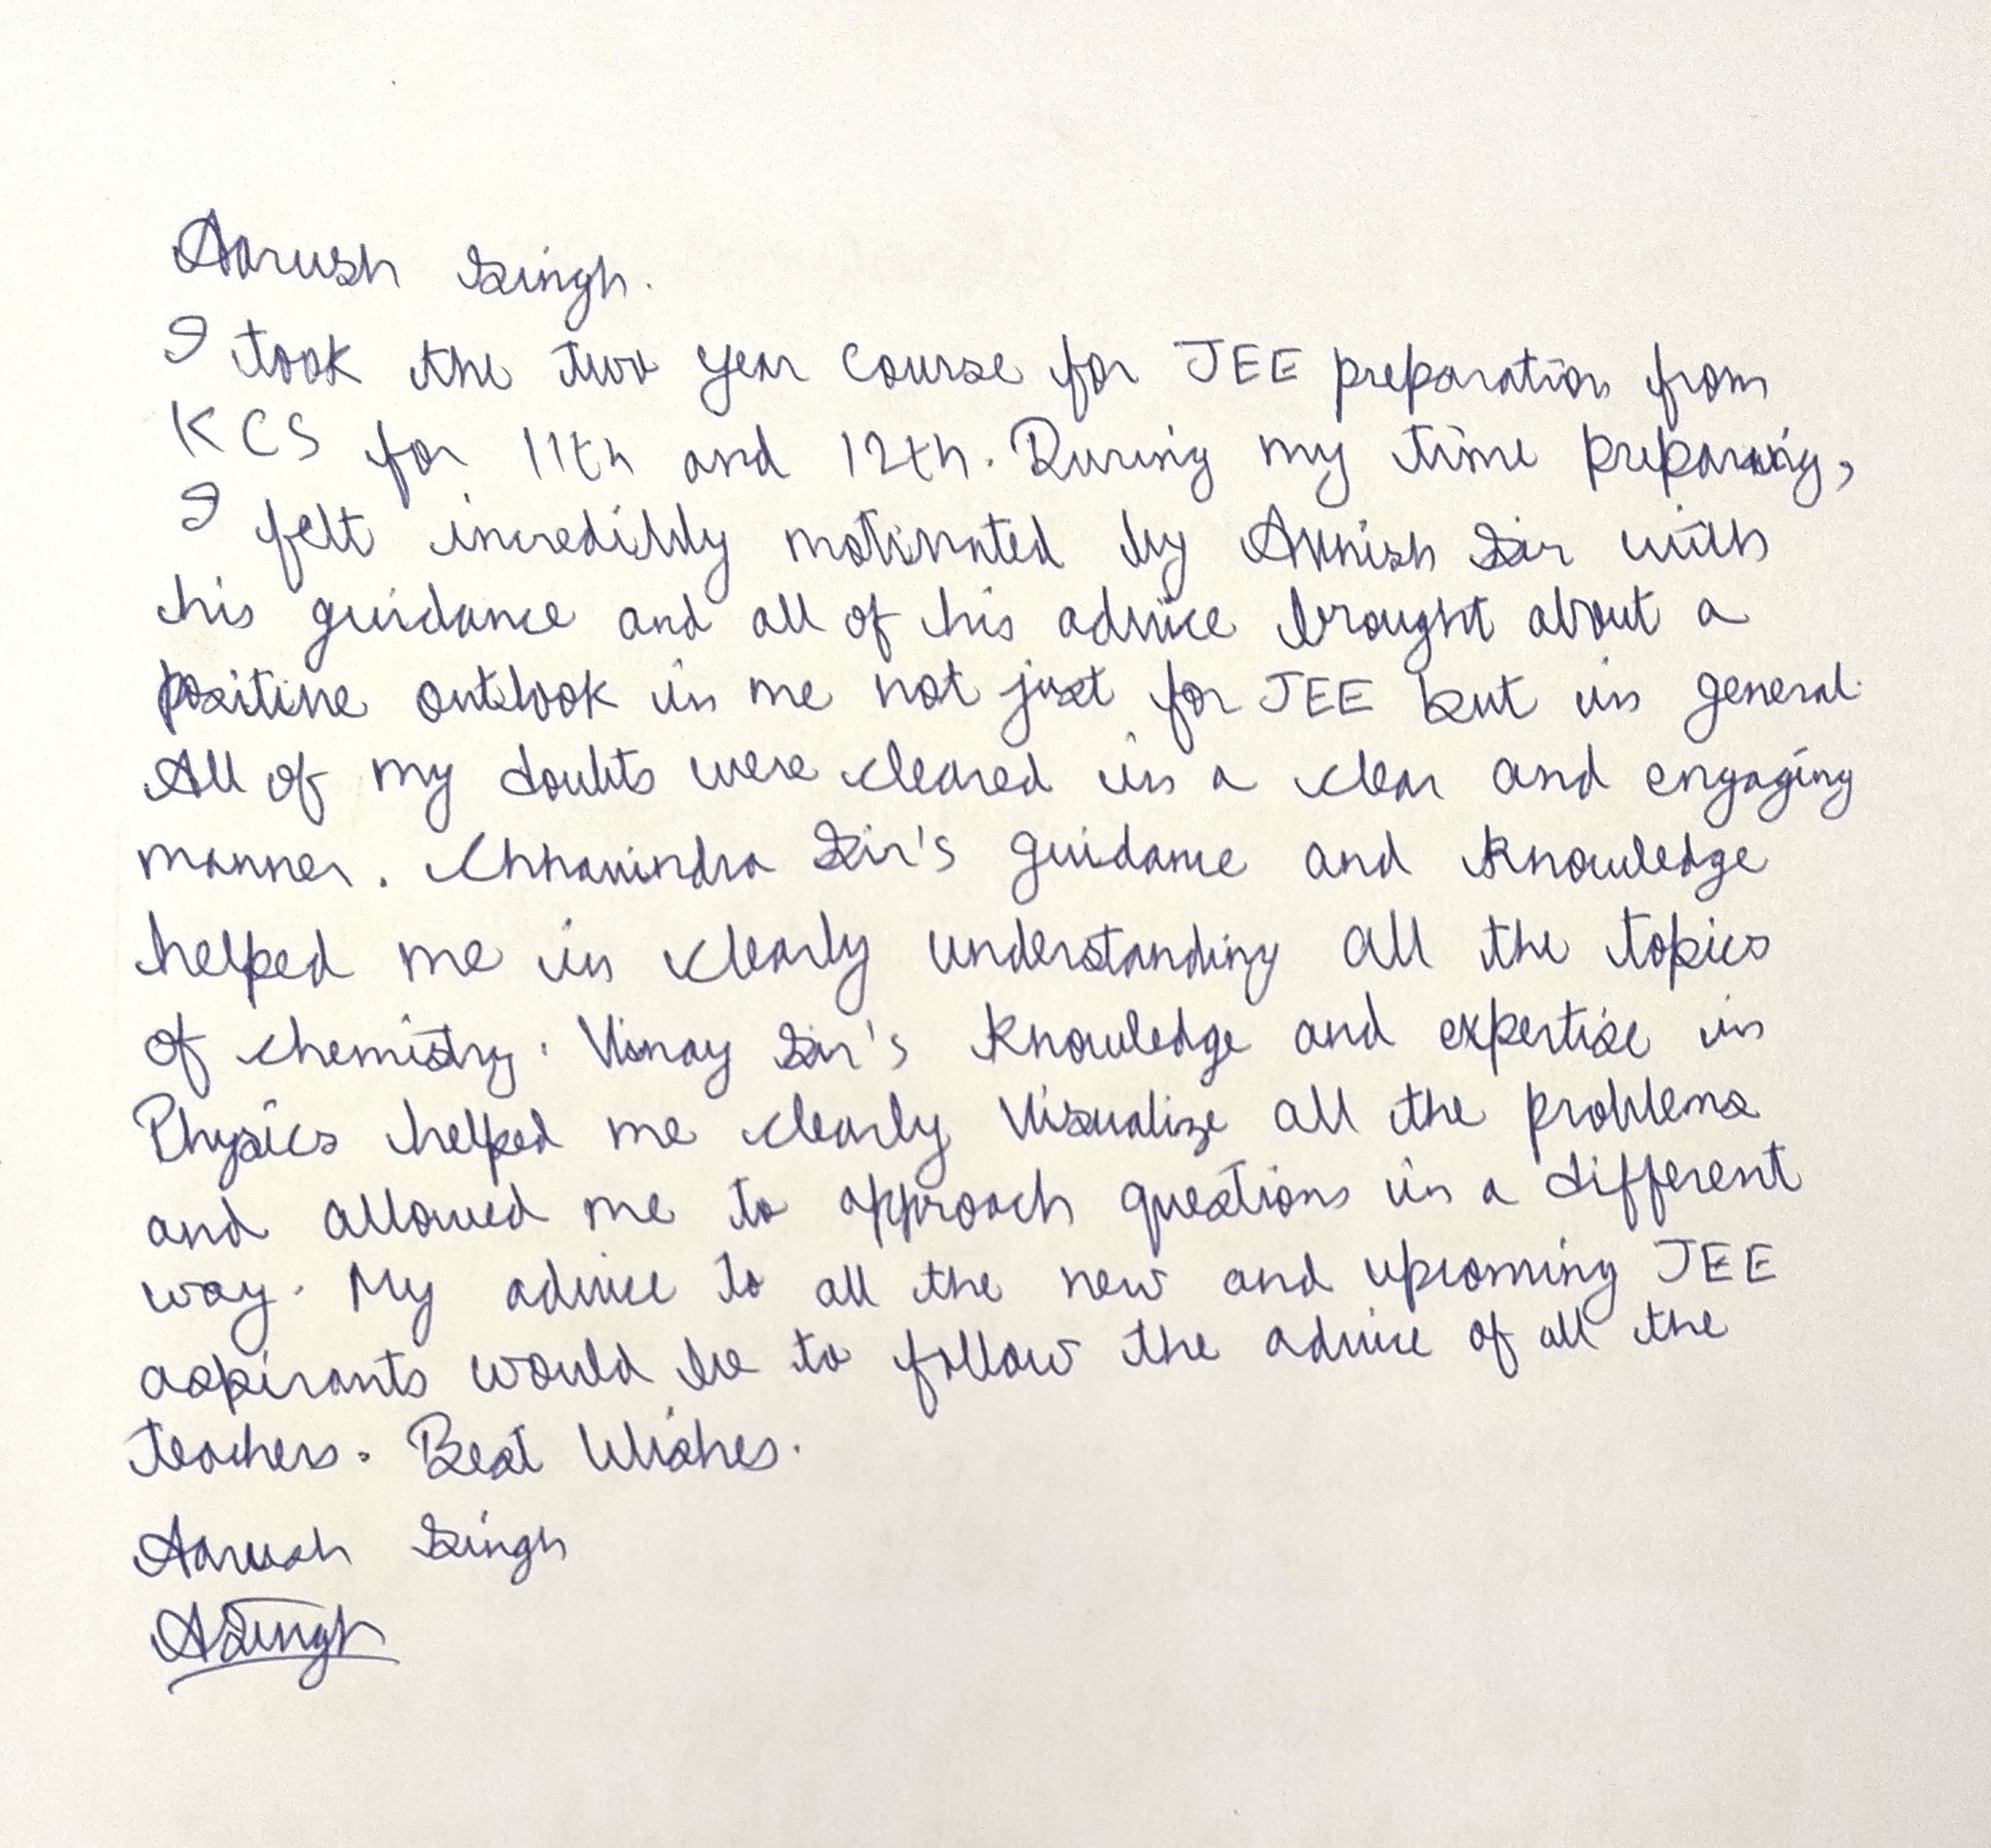 Aarush Singh.
I took the two year course for JEE preparation from
KCS for 11th and 12th. During my time preparing,
I felt incredibly motivated by Avnish Sir with
his guidance and all of his advice brought about a
positive outlook in me not just for JEE but in general.
All of my doubts were cleared in a clear and engaging
manner. Chhavindra Sir's guidance and knowledge
helped me in clearly understanding all the topics
of chemistry. Vinay Sir's knowledge and expertise in
Physics helped me clearly visualize all the problems
and allowed me to approach questions in a different
way. My advice to all the new and upcoming JEE
aspirants would be to follow the advice of all the
teachers. Best Wishes.
Aarush Singh
ASingh